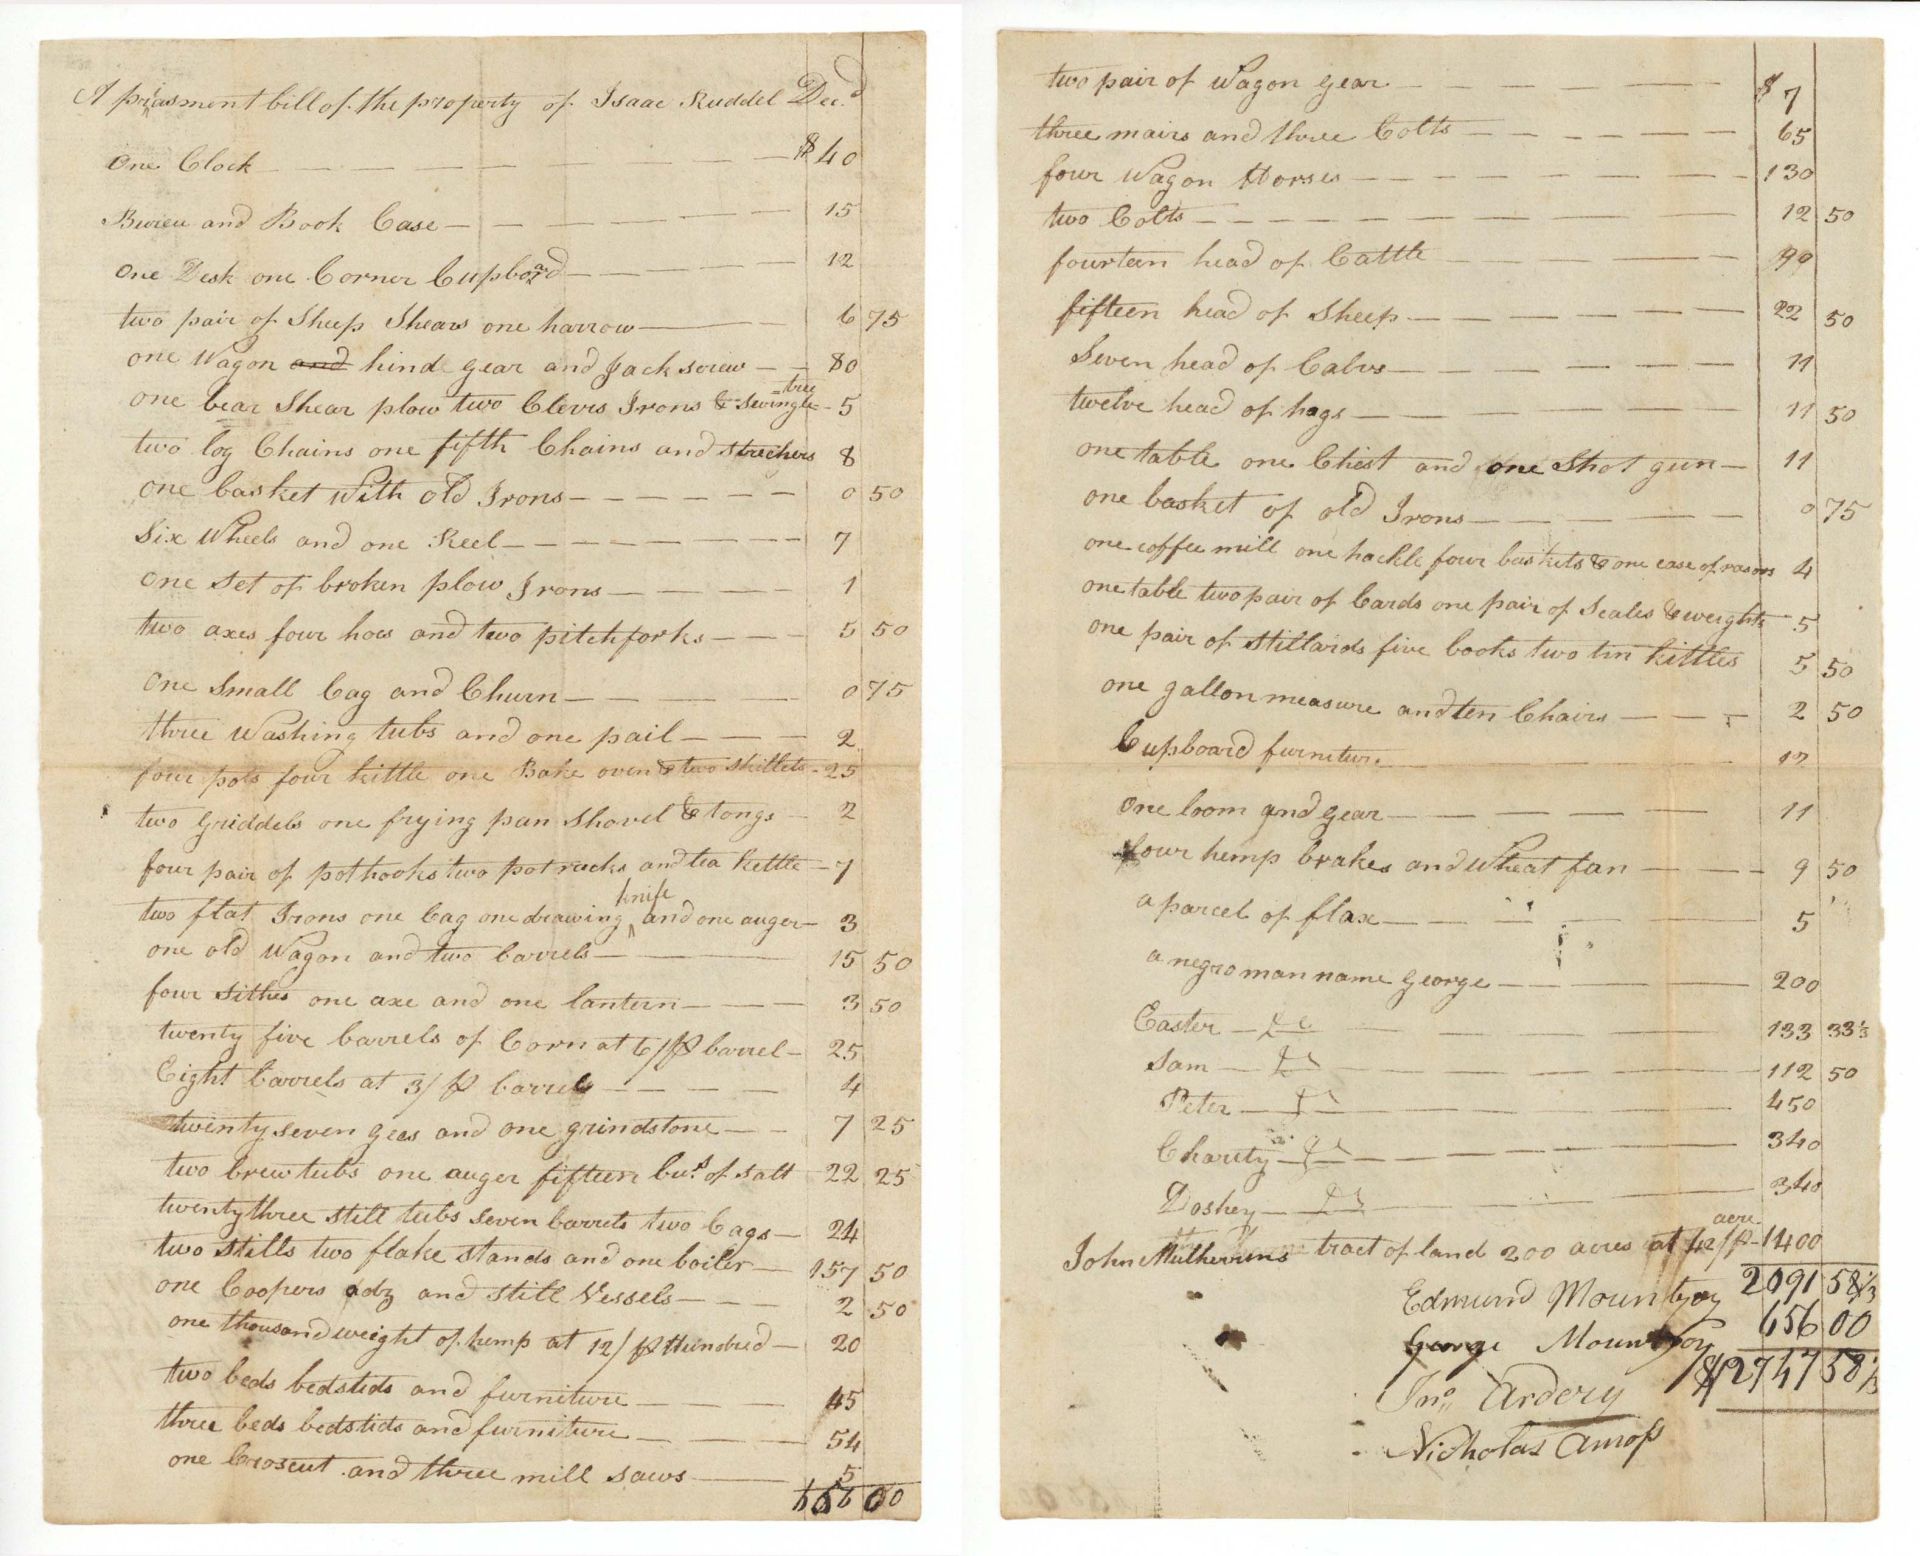 A prasment bill of the property of Isaac Ruddel Dec.d
One Clock $40
Bureu and Book Case 15
One Desk one Corner Cupbord 12
two pair of Sheep Shears one harrow 6 75
one Wagon and hind gear and Jack screw 80
one bear Shear plow two Clevis Irons & Swingle=tree 5
two log Chains one fifth Chains and strechers 8
one basket with old Irons 0 50
Six Wheels and one Reel 7
one set of broken plow Irons 1
two axes four hoes and two pitchforks 5 50
One Small Cag and Churn 0 75
three Washing tubs and one pail 2
four pots four kittle one Bake oven & two skillets 25
two griddels one frying pan shovel & tongs 2
four pair of pothooks two potracks and tea kettle 7
two flat Irons one Cag one drawing knife and one auger 3
one old Wagon and two barrels 15 50
four sithes one axe and one lantern 3 50
twenty five barrels of Corn at 6/ ⅌ barrel 25
Eight barrels at 3/ ⅌ barrel 4
twenty seven gees and one grindstone 7 25
two brewtubs one auger fifteen bus. of salt 22 25
twenty three still tubs seven barrels two Cags 24
two stills two flake stands and one boiler 157 50
one Coopers adz and still Vessels 2 50
one thousand weight of hemp at 12/ ⅌ Hundred 20
two beds bedstids and furniture 45
three beds bedstids and furniture 54
one Croscut and three mill saws 5
656 00
two pair of Wagon gear $7
three mairs and three Colts 65
four Wagon Horses 130
two Colts 12 50
fourteen head of Cattle 99
fifteen head of sheep 22 50
Seven head of Calvs 11
twelve head of hogs 11 50
one table one Chest and one Shot gun 11
one basket of old Irons 0 75
one coffee mill one hackle four baskets & one case of rasors 4
one table two pair of Cards one pair of Scales & weights 5
one pair of stillards five books two tin kittles 5 50
one gallon measure and ten Chairs 2 50
Cupboard furniture 12
One loom and gear 11
four hemp brakes and Wheat fan 9 50
a parcel of flax 5
a negro man name George 200
Easter do 133 33⅓
Sam do 112 50
Peter do 450
Charity do 340
Doshey do 340
John Mulherrins tract of land 200 acres at 42/ ⅌ acre 1400
Edmund Mountjoy 2091 58⅓
George Mountjoy 656 00
$2747 58⅓
Jno. Ardery
Nicholas Amoss